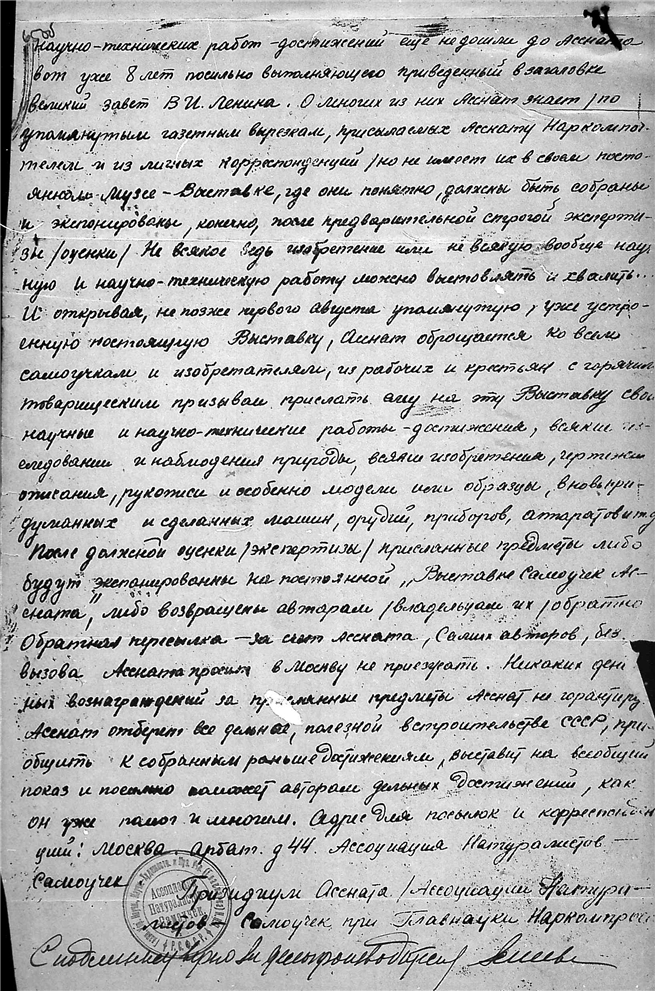 научно-технических работ-достижений еще не дошли до Ассната
вот уже 8 лет посильно выполняющего приведенный в заголовке
великий завет В.И. Ленина. О многих из них Асснат знает /по
упомянутым газетным вырезкам, присылаемых Ассната Наркомпоч-
телем и из личных корреспонденций/ но не имеет их в своем посто-
янном Музее-Выставке, где они понятно, должны быть собраны
и экспонированы, конечно, после предварительной строгой эксперти-
зы /оценки/ Не всякое ведь изобретение или не всякую вообще нау
ную и научно-техническую работу можно выставлять и хвалить...
И открывая, не позже первого августа упомянутую, уже устро-
енную постоящую Выставку, Асснат обращается ко всем
самоучкам и изобретателям, из рабочих и крестьян с горячим
товарищеским призывам прислать ему на эту Выставку сво
научные и научно-технические работы-достижения, всякие ис-
следовании и наблюдения природы, всякие изобретения, чертежи
описания, рукописи и особенно модели или образцы, вновьпри-
думанных и сделанных машин, орудий, приборов, аппаратов и т.д
После должной оценки /экспертизы/ присланные предметы либо
будут экспанированны на постоянной „Выставке Самоучек Ас-
сната", либо возвращены авторам /владельцам их/ обратно
Обратная пересылка - за счет Ассната, Самих авторов, без
вызова Ассната просит в Москву не приезжать. Никаких ден
ных вознаграждений за присланные предметы Асснат не гарантиру
Асснат отберет все дельное, полезной в строительстве СССР, при-
общить к собранным раньше достижениям, выставит на всеобщий
показ и посильно поможет авторам дельных достижений, как
он уже помог и многим. Адрес для посылок и корреспонден
ций: Москва Арбат. д 44. Ассоциация Натуралистов -
Самоучек
Президиум Ассната /Ассоциации Натура-
листов Самоучек при Главнауки Наркомпрос
Ассоциация
Натуралистов
Самоучек
Р.С.Ф.С.Р.
С подлинным верно Делопроизводитель